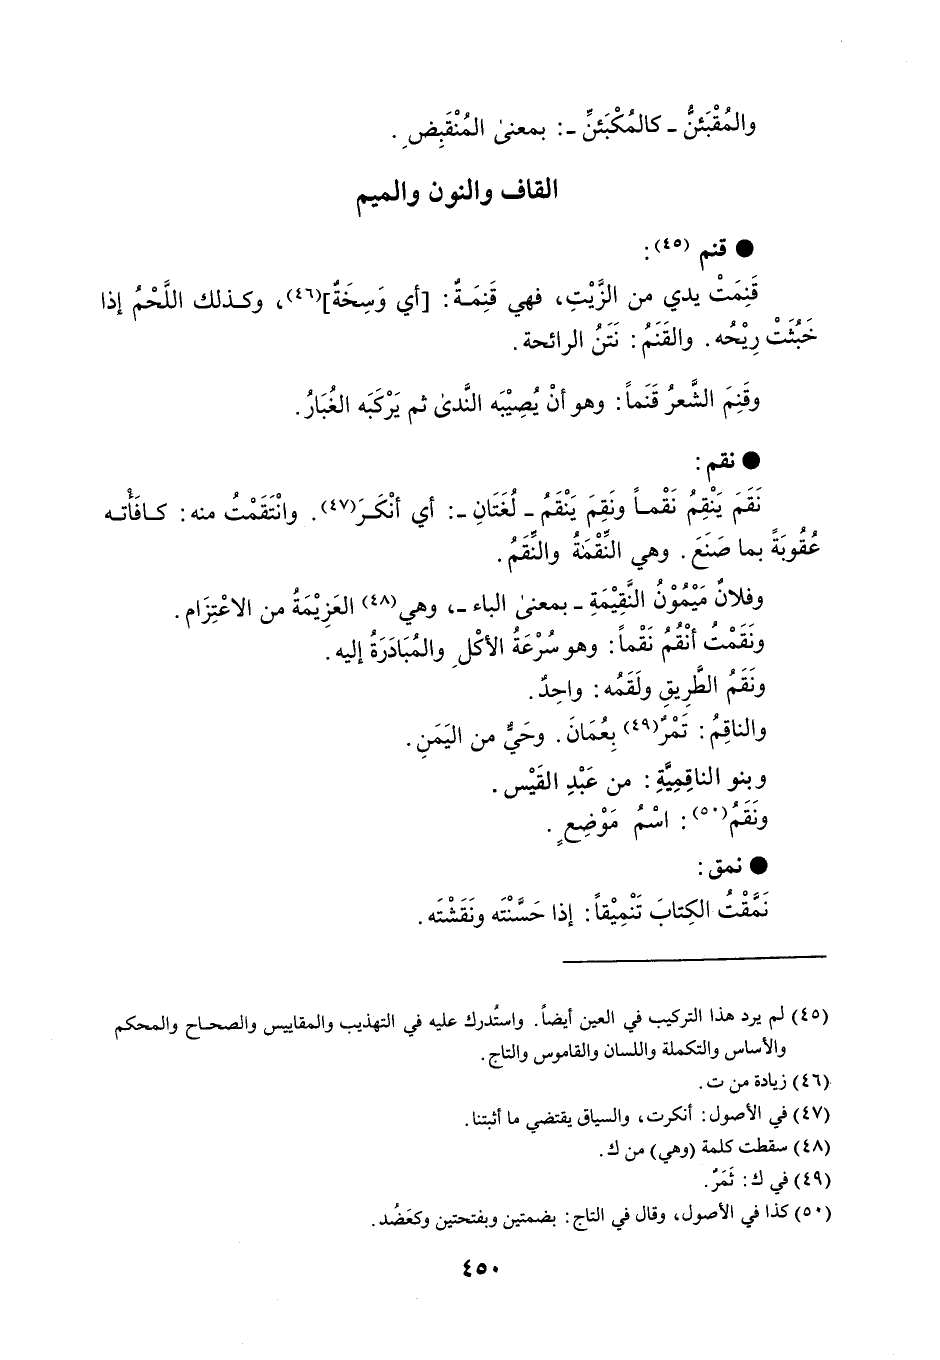 والمُقْبَئنُّ ـ كالمُكْبَئنِّ ـ: بمعنىٰ المُنْقَبِضِ.
القاف والنون والميم
● قنم (٤٥):
قَنِمَتْ يدي من الزَّيْتِ، فهي قَنِمَةٌ: [أي وَسِخَةٌ](٤٦)، وكذلك اللَّحْمُ إذا
خَبُثَتْ رِيْحُه. والقَنَمُ: نَتَنُ الرائحة.
وقَنِمَ الشَّعرُ قَنَماً: وهو أنْ يُصِيْبَه النَّدىٰ ثم يَرْكَبَه الغُبَارُ.
● نقم:
نَقَمَ يَنْقِمُ نَقْماً ونَقِمَ يَنْقَمُ ـ لُغَتَانِ ـ: أي أنْكَرَ(٤٧). وانْتَقَمْتُ منه: كافَأْته
عُقُوبَةً بما صَنَعَ. وهي النِّقْمَةُ والنِّقَمُ.
وفلانٌ مَيْمُوْنُ النَّقِيْمَةِ ـ بمعنىٰ الباء ـ، وهي(٤٨) العَزِيْمَةُ من الاعْتِزَام.
ونَقَمْتُ أنْقُمُ نَقْماً: وهو سُرْعَةُ الأكْلِ والمُبَادَرَةُ إليه.
ونَقَمُ الطَّرِيقِ ولَقَمُه: واحِدٌ.
والناقِمُ: تَمْرٌ(٤٩) بِعُمَانَ. وحَيٌّ من اليَمَنِ.
وبنو الناقِمِيَّةِ: من عَبْدِ القَيْس.
ونَقَمُ(٥٠): اسْمُ مَوْضِعٍ.
● نمق:
نَمَّقْتُ الكِتابَ تَنْمِيْقاً: إذا حَسَّنْتَه ونَقَشْتَه.
(٤٥) لم يرد هذا التركيب في العين أيضاً. واستُدرك عليه في التهذيب والمقاييس والصحاح والمحكم
والأساس والتكملة واللسان والقاموس والتاج.
(٤٦) زيادة من ت.
(٤٧) في الأصول: أنكرت، والسياق يقتضي ما أثبتنا.
(٤٨) سقطت كلمة (وهي) من ك.
(٤٩) في ك: ثَمَرٌ.
(٥٠) كذا في الأصول، وقال في التاج: بضمتين وبفتحتين وكعَضُد.
٤٥٠